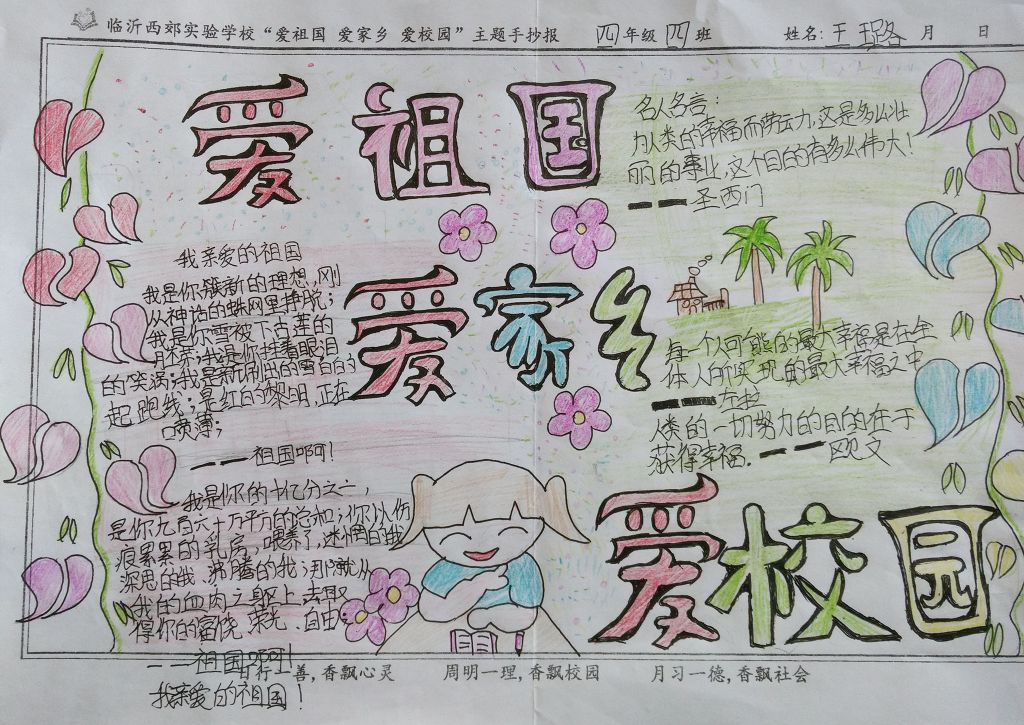 临沂西郊实验学校“爱祖国 爱家乡 爱校园”主题手抄报 四年级四班 姓名:王璐 月 日
爱祖国
名人名言:
为人类的幸福而劳动,这是多么壮
丽的事业,这个目的有多么伟大!
——圣西门
我亲爱的祖国
我是你簇新的理想,刚
从神话的蛛网里挣脱;
我是你雪被下古莲的
胚芽;我是你挂着眼泪
的笑涡;我是新刷出的雪白的
起跑线;是红的黎明,正在
喷薄;
——祖国啊!
爱家乡
每一个人可能的最大幸福是在全
体人所实现的最大幸福之中
——左拉
人类的一切努力的目的在于
获得幸福.——欧文
我是你的十亿分之一,
是你九百六十万平方的总和;你以伤
痕累累的乳房,喂养了,迷惘的我
深思的我,沸腾的我;那就从
我的血肉之躯上,去取
得你的富饶,荣光,自由;
——祖国啊!
我亲爱的祖国!
爱校园
日行一善,香飘心灵 周明一理,香飘校园 月习一德,香飘社会